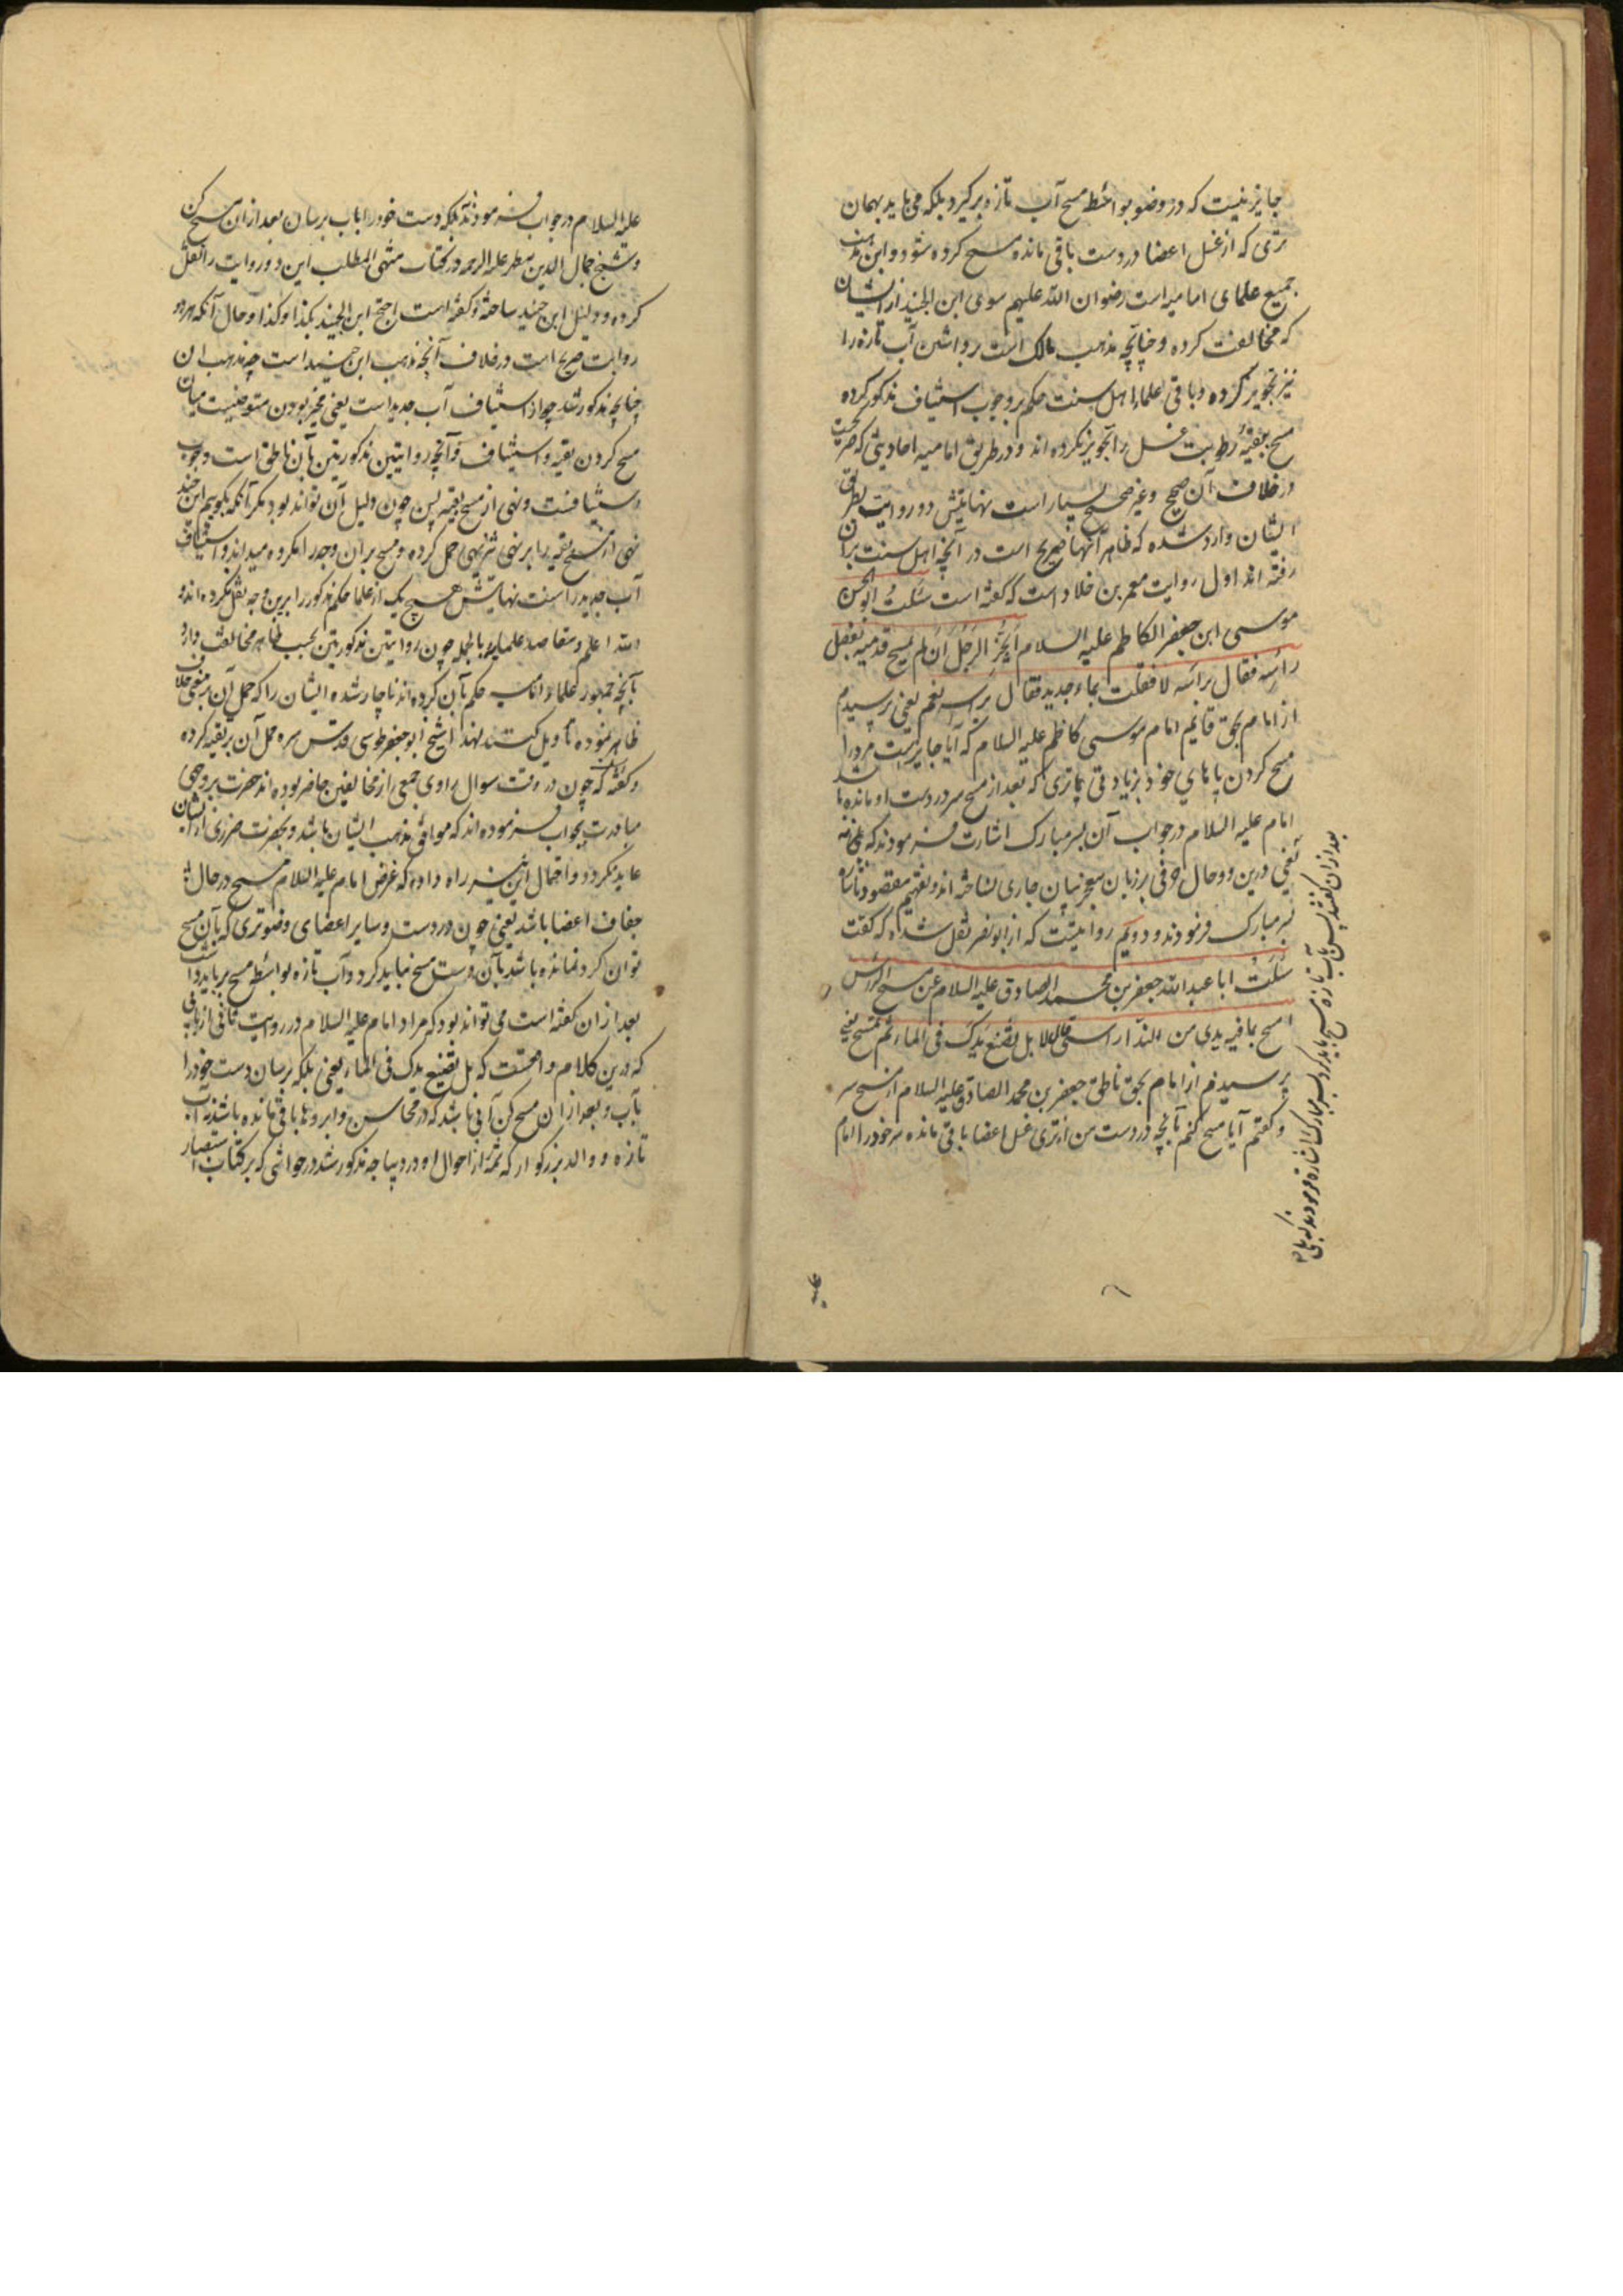 جایز نیست که در وضو بواسطه مسح آب تازه برگیرد بلکه می باید بهمان
تری که از غسل اعضا در دست باقی مانده مسح کرده شود و این مذهب
جمیع علمای امامیه است رضوان الله علیهم سوی ابن الجنید از ایشان
که مخالفت کرده و چنانچه مذهب مالک است برداشتن آب تازه را
نیز تجویز کرده و باقی علماء اهل سنت حکم بر وجوب استیناف مذکور کرده
مسح ببقیهٔ رطوبت غسل را تجویز نکرده اند و در طریق امامیه احادیثی که صریحست
در خلاف آن صحیح و غیر صحیح بسیار است نهایتش دو روایت بطرق
ایشان وارد شده که ظاهر آنها صریح است در آنچه اهل سنت بران
رفته اند اول روایت معمر بن خلاد است که گفته است سئلت ابوالحسن
موسی ابن جعفر الکاظم علیه السلام ایجزی الرجل ان لم یمسح قدمیه بفضل
رأسه فقال برأسه لا فقلت بماء جدید فقال برأسه نعم یعنی پرسیدم
از امام بحق قایم امام موسی کاظم علیه السلام که آیا جایز است مرد را
مسح کردن پاهای خود بزیادتی تری که بعد از مسح سر در دست او مانده باشد
امام علیه السلام در جواب آن بسر مبارک اشارت فرمودند که نی نه
یعنی درین دو حال حرفی بر زبان معجز بیان جاری نساخته اند و تفهیم مقصود باشاره
سر مبارک فرمودند و دویم روایتیست که از ابو بصیر نقل شده که گفت
سئلت ابا عبدالله جعفر بن محمد الصادق علیه السلام عن مسح الرأس
امسح بما فی یدی من الندا رأسی قال لا بل تضع یدک فی الماء ثم تمسح یعنی
پرسیدم از امام بحق ناطق جعفر بن محمد الصادق علیه السلام از مسح سر
و گفتم آیا مسح کنم بآنچه در دست من از تری غسل اعضا باقی مانده سر خود را امام
بعد از آن گفتند پس بآب تازه مسح باید کرد بسر مبارک اشاره فرمودند که بلی
علیه
علیه السلام در جواب فرمودند نه بلکه دست خود را باب برسان بعد از ان مسح کن
و شیخ جمال الدین مطهر علیه الرحمه در کتاب منتهی المطلب این دو روایت را نقل
کرده و دلیل ابن جنید ساخته و گفته است احتج ابن الجنید بکذا و کذا و حال آنکه هر دو
روایت صریح است در خلاف آنچه مذهب ابن جنید است چه مذهب ان
چنانچه مذکور شد جواز استیناف آب جدید است یعنی مخیر بودن متوضیست میان
مسح کردن ببقیه و استیناف و آنچه روایتین مذکورتین بآن ناطق است وجوب
استینافست و نهی از مسح ببقیه پس چون دلیل آن تواند بود مگر آنکه بگوییم ابن جنید
نهی از مسح ببقیه را بر نهی تنزیهی حمل کرده و مسح بران وجه را مکروه میداند و استیناف
آب جدید را سنت نهایتش هیچ یک از علما حکم مذکور را برین وجه نقل نکرده اند و
الله اعلم و مقاصد علمایه بالجمله چون روایتین مذکورتین بحسب ظاهر مخالفت دارد
بآنچه جمهور علماء امامیه حکم بآن کرده اند ناچار شده ایشان را که حمل آن بر معنی خلاف
ظاهر نموده تأویل کنند لهذا شیخ ابو جعفر طوسی قدس سره حمل آن بر تقیه کرده
و گفته که چون در وقت سوال راوی جمعی از مخالفین حاضر بوده اند حضرت بر وجهی
مبادرت بجواب فرموده اند که موافق مذهب ایشان باشد و بحضرت ضرری از ایشان
عاید نگردد و احتمال این نیز راه داده که غرض امام علیه السلام مسح در حال
جفاف اعضا باشد یعنی چون در دست و سایر اعضای وضو تری که بآن مسح
توان کرد نمانده باشد بآن دست مسح نباید کرد و آب تازه بواسطه مسح بر باید داشت
بعد از ان گفته است می تواند بود که مراد امام علیه السلام در روایت ثانی از آبی
که درین کلام واقعست که بل تضع یدک فی الماء یعنی بلکه برسان دست خود را
بآب و بعد از ان مسح کن آبی باشد که در محاسن و ابروها باقی مانده باشد نه آب
تازه و والد بزرگوار که شمهٔ از احوال او در دیباجه مذکور شد در حواشی که بر کتاب استبصار